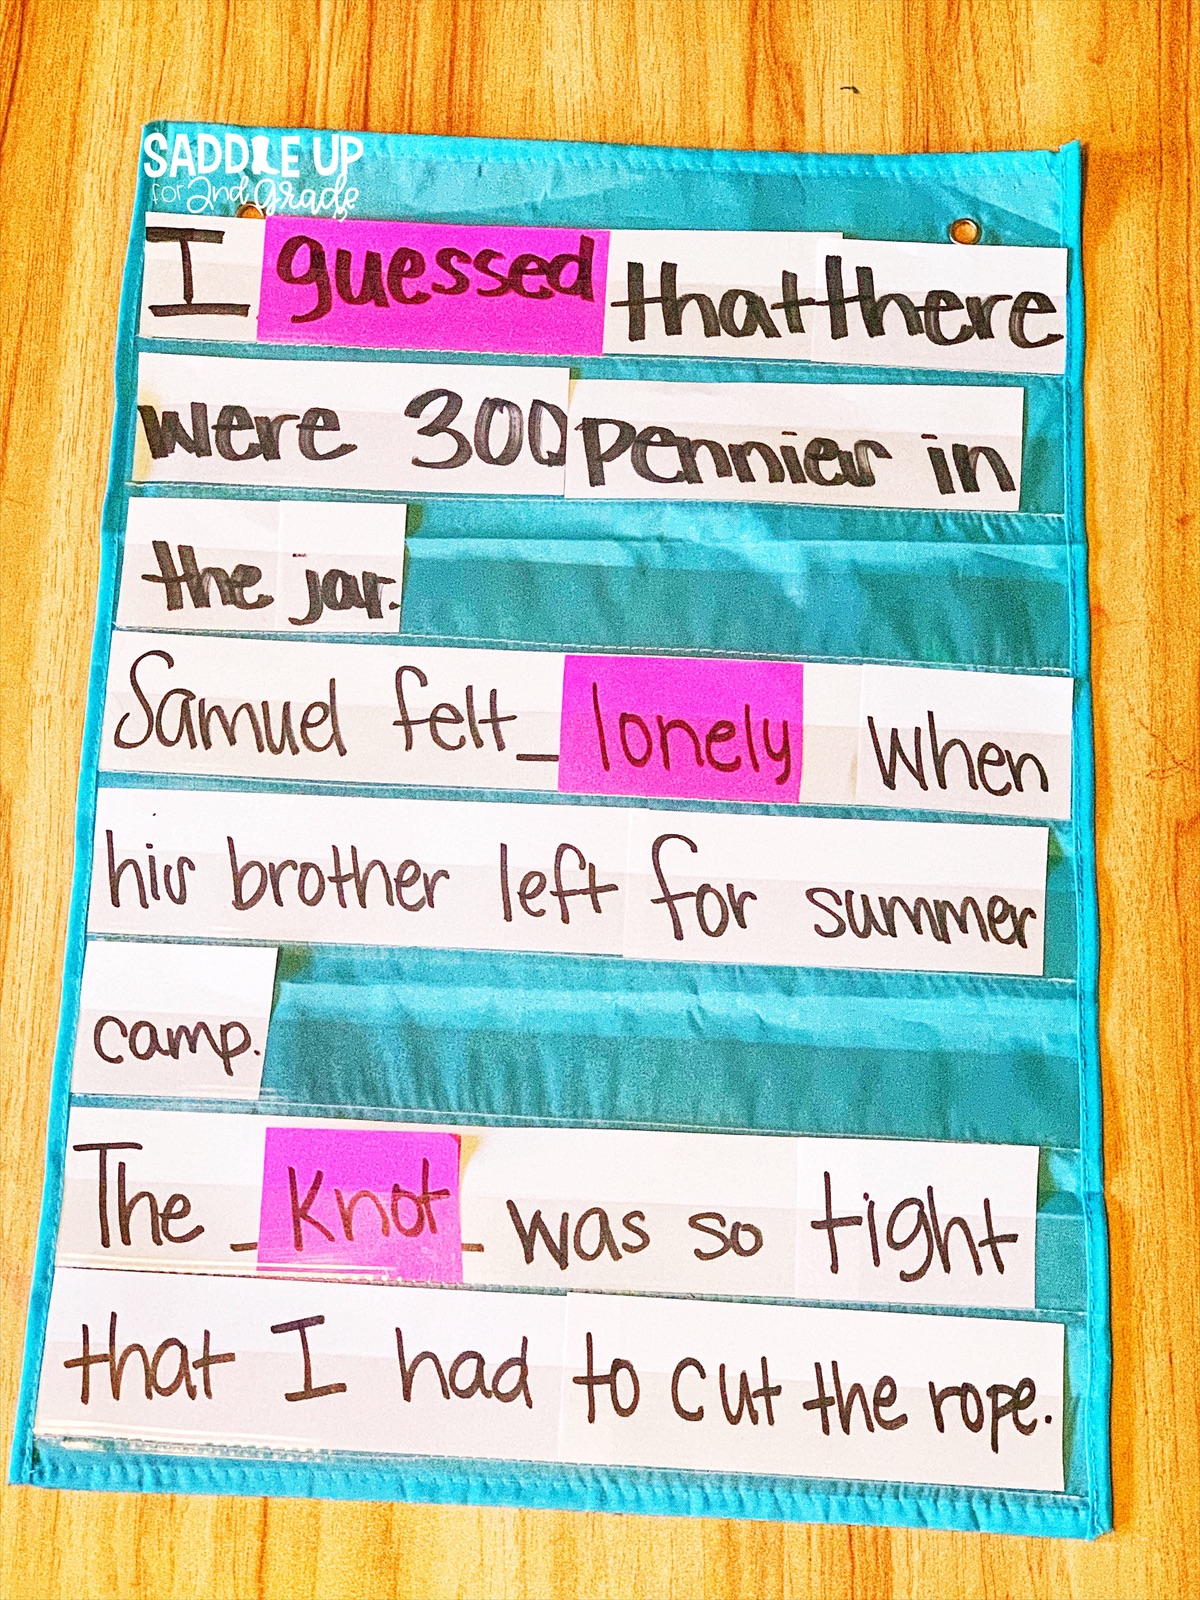 SADDLE UP
for 2nd Grade
I guessed that there
were 300 pennies in
the jar.
Samuel felt_ lonely when
his brother left for summer
camp.
The _Knot_ was so tight
that I had to cut the rope.